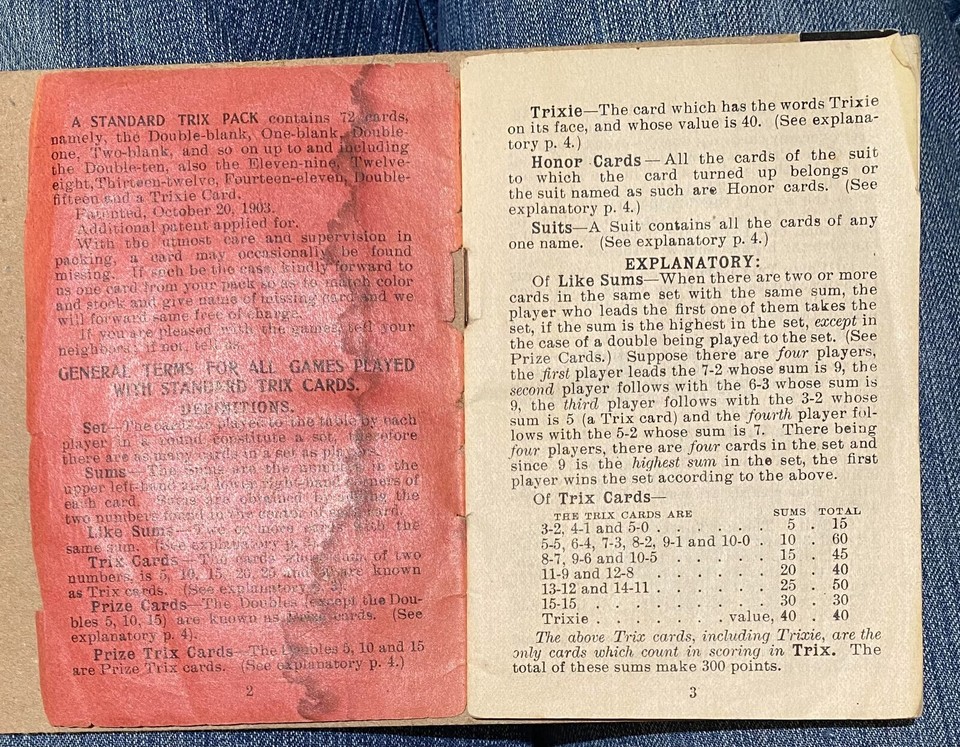 A STANDARD TRIX PACK contains 72 cards,
namely, the Double-blank, One-blank, Double-
one, Two-blank, and so on up to and including
the Double-ten, also the Eleven-nine, Twelve-
eight, Thirteen-twelve, Fourteen-eleven, Double-
fifteen and a Trixie Card.
Patented, October 20, 1903.
Additional patent applied for.
With the utmost care and supervision in
packing, a card may occasionally be found
missing. If such be the case, kindly forward to
us one card from your pack so as to match color
and stock and give name of missing card and we
will forward same free of charge.
If you are pleased with the games, tell your
neighbors; if not, tell us.
GENERAL TERMS FOR ALL GAMES PLAYED
WITH STANDARD TRIX CARDS.
DEFINITIONS.
Set—The cards as played to the table by each
player in a round constitute a set, therefore
there are as many cards in a set as players.
Sums—The Sums are the numbers in the
upper left-hand and lower right-hand corners of
each card. Sums are obtained by adding the
two numbers found in the center of each card.
Like Sums—Two or more cards with the
same sum. (See explanatory p.
Trix Cards—The cards whose sum of two
numbers is 5, 10, 15, 20, 25 and 30 are known
as Trix cards. (See explanatory p. 3).
Prize Cards—The Doubles (except the Dou-
bles 5, 10, 15) are known as Prize cards. (See
explanatory p. 4).
Prize Trix Cards—The Doubles 5, 10 and 15
are Prize Trix cards. (See explanatory p. 4.)
2
Trixie—The card which has the words Trixie
on its face, and whose value is 40. (See explana-
tory p. 4.)
Honor Cards—All the cards of the suit
to which the card turned up belongs or
the suit named as such are Honor cards. (See
explanatory p. 4.)
Suits—A Suit contains all the cards of any
one name. (See explanatory p. 4.)
EXPLANATORY:
Of Like Sums—When there are two or more
cards in the same set with the same sum, the
player who leads the first one of them takes the
set, if the sum is the highest in the set, except in
the case of a double being played to the set. (See
Prize Cards.) Suppose there are four players,
the first player leads the 7-2 whose sum is 9, the
second player follows with the 6-3 whose sum is
9, the third player follows with the 3-2 whose
sum is 5 (a Trix card) and the fourth player fol-
lows with the 5-2 whose sum is 7. There being
four players, there are four cards in the set and
since 9 is the highest sum in the set, the first
player wins the set according to the above.
Of Trix Cards—
THE TRIX CARDS ARE SUMS TOTAL
3-2, 4-1 and 5-0 . . . . . . 5 . 15
5-5, 6-4, 7-3, 8-2, 9-1 and 10-0 . 10 . 60
8-7, 9-6 and 10-5 . . . . . 15 . 45
11-9 and 12-8 . . . . . . 20 . 40
13-12 and 14-11 . . . . . . 25 . 50
15-15 . . . . . . . . 30 . 30
Trixie . . . . . . . value, 40 . 40
The above Trix cards, including Trixie, are the
only cards which count in scoring in Trix. The
total of these sums make 300 points.
3